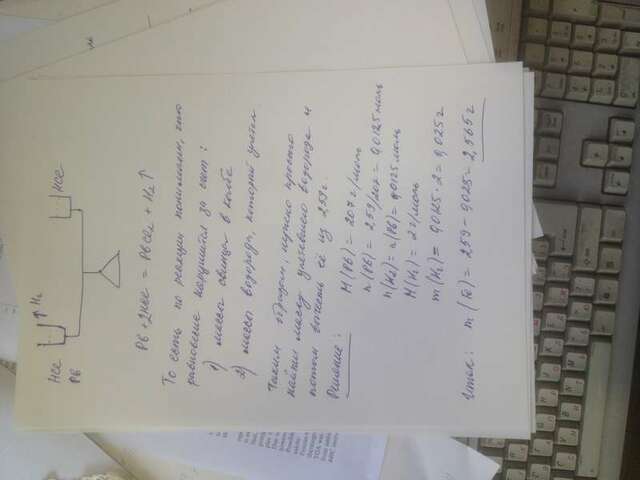 ↑ H₂
HCl
HCl
Pb
Pb + 2HCl = PbCl₂ + H₂↑
То есть по реакции понимаем, что
равновесие нарушится за счет:
1) массы свинца в колбе
2) массы водорода, который улетел.
Таким образом, нужно просто
найти массу улетевшего водорода и
потом вычесть её из 2,59 г.
Решение:
M(Pb) = 207 г/моль
n(Pb) = 2,59/207 = 0,0125 моль
n(H₂) = n(Pb) = 0,0125 моль
M(H₂) = 2 г/моль
m(H₂) = 0,0125 · 2 = 0,025 г
Итог: m(Fe) = 2,59 - 0,025 = 2,565 г